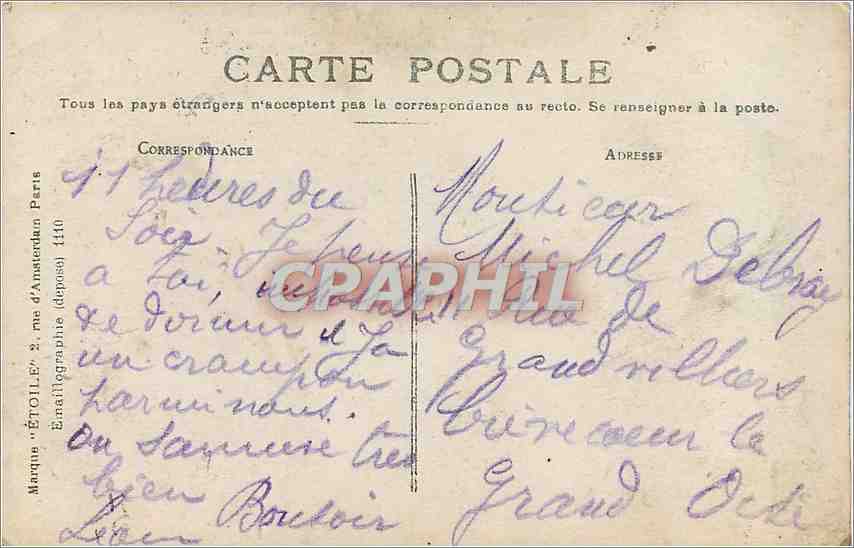 CARTE POSTALE
Tous les pays étrangers n'acceptent pas la correspondance au recto. Se renseigner à la poste.
CORRESPONDANCE
11 heures du
Soir. Je pense
a toi,
de dormir il y a
un crampon
parmi nous.
on samuse tres
bien
Léon Bonsoir
ADRESSE
Monsieur
Michel Debray
Rue de
Grandvilliers
Crèvecoeur le
Grand Oise
Marque "ÉTOILE" 2, rue d'Amsterdam Paris
Emaillographie (déposé) 1110
CPAPHIL